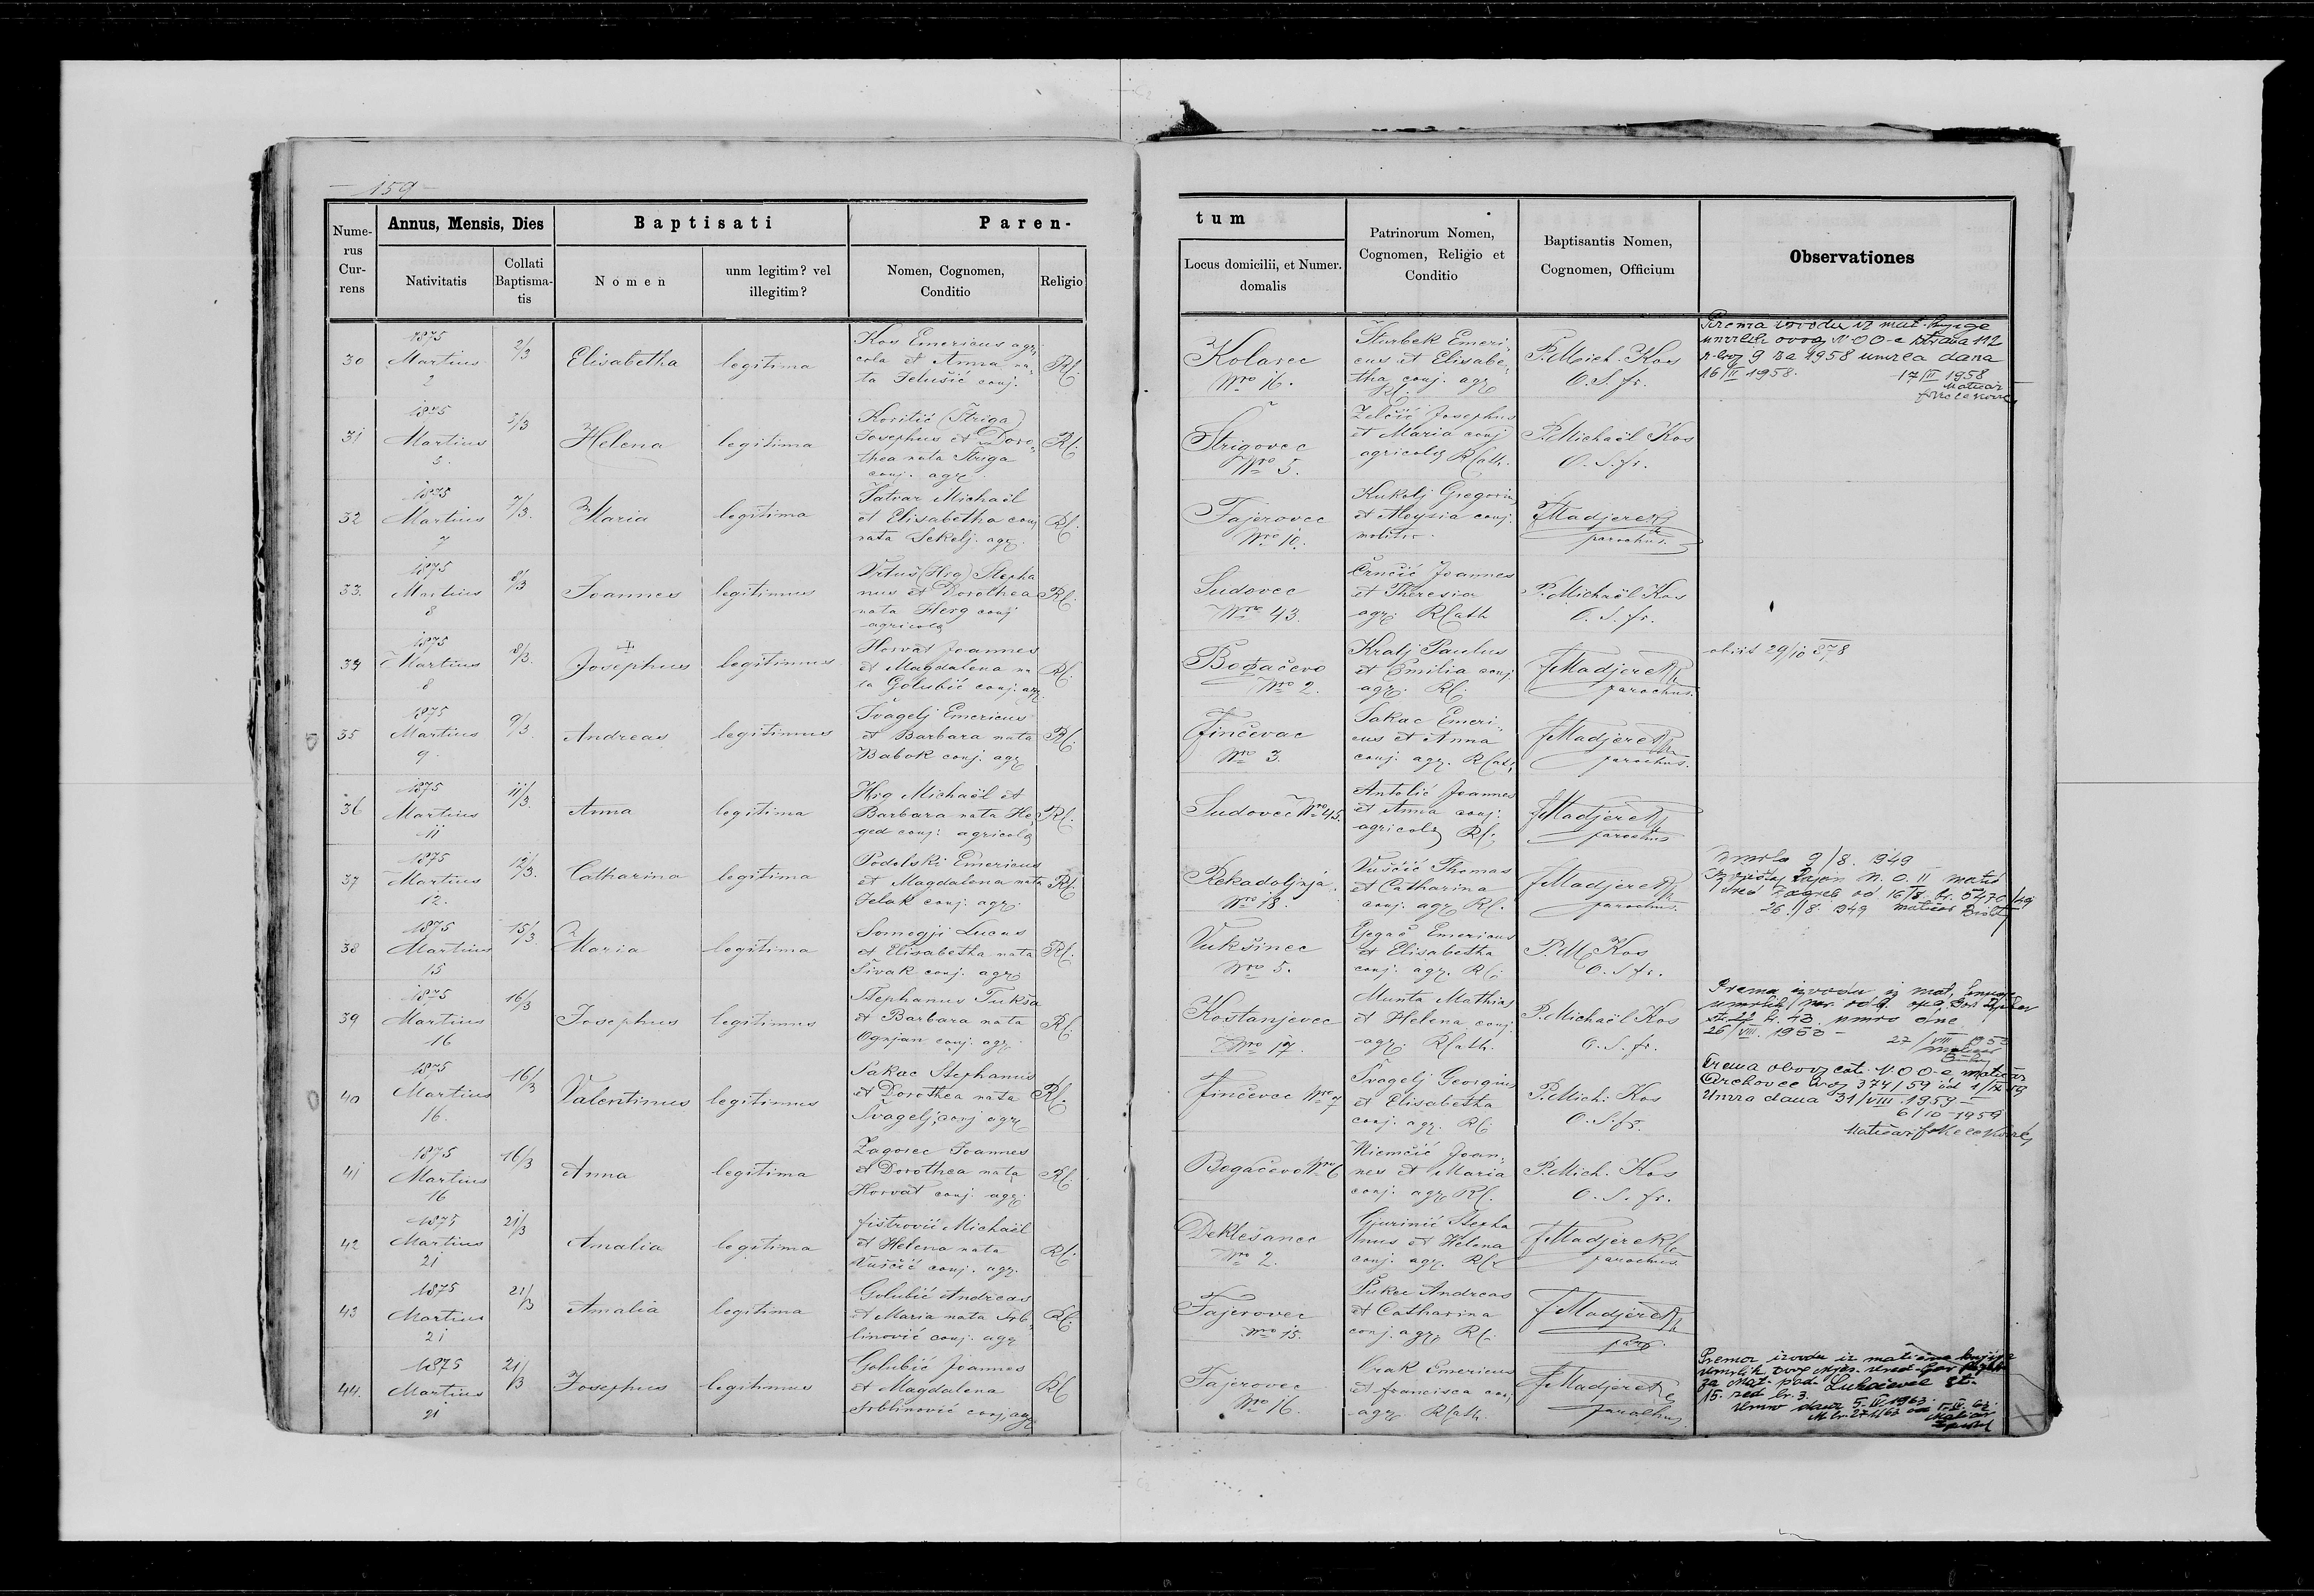 — 159 —
Nume-
rus
Cur-
rens
Annus, Mensis, Dies
Nativitatis
Collati
Baptisma-
tis
Baptisati
Nomen
unm legitim? vel
illegitim?
Paren-
Nomen, Cognomen,
Conditio
Religio
tum
Locus domicilii, et Numer.
domalis
Patrinorum Nomen,
Cognomen, Religio et
Conditio
Baptisantis Nomen,
Cognomen, Officium
Observationes
30
1875
Martius
2
2/3
Elisabetha
legitima
Kos Emericus agri
cola et Anna na
ta Jelušić conj.
RC.
Kolarec
Nro 16.
Šturbek Emeri
cus et Elisabe
tha conj. agr
RC.
P. Mich. Kos
O. S. fr.
Prema izvodu iz mat. knjige
umrlih ovog N.O.O-a strana 112
r. broj 9 za 1958 umrla dana
16/II 1958.
17/II 1958
Matičar
31
1875
Martius
3.
3/3
Helena
legitima
Koritić (Štriga)
Josephus et Doro
thea nata Štriga
conj. agr.
RC.
Štrigovec
Nro 5.
Zelčić Josephus
et Maria conj
agricolæ RCath.
P. Michaël Kos
O. S. fr.
32
1875
Martius
7
7/3.
Maria
legitima
Tatvar Michaël
et Elisabetha conj
nata Sekelj. agr.
RC.
Fajerovec
Nro 10.
Kukolj Gregorius
et Aloysia conj.
molitor.
F Madjerek
parochus.
33.
1875
Martius
8
8/3
Joannes
legitimus
Vrtuš (Hrg) Stepha
nus et Dorothea
nata Herg conj
agricolæ
RC.
Sudovec
Nro 43.
Črnčić Joannes
et Theresia
agr. RCath
P. Michaël Kos
O. S. fr.
34
1875
Martius
8
8/3.
+
Josephus
legitimus
Horvat Joannes
et Magdalena na
ta Golubić conj. agr.
RC.
Bogačevo
Nro 2.
Kralj Paulus
et Emilia conj
agr. RC.
F Madjerek
parochus.
obiit 29/10 878
35
1875
Martius
9.
9/3.
Andreas
legitimus
Švagelj Emericus
et Barbara nata
Babok conj. agr
RC.
Finčevac
Nro 3.
Sakac Emeri
cus et Anna
conj. agr. RCath
F Madjerek
parochus.
36
1875
Martius
11
11/3.
Anna
legitima
Hrg Michaël et
Barbara nata He
ged conj. agricolæ
RC.
Sudovec Nro 45.
Antolić Joannes
et Anna conj.
agricolæ RC.
F Madjerek
parochus
37
1875
Martius
12.
12/3.
Catharina
legitima
Podolski Emericus
et Magdalena nata
Jelak conj. agr.
RC.
Rekadoljnja
Nro 18.
Vuščić Thomas
et Catharina
conj. agr. RC.
F Madjerek
parochus.
Umrla 9/8. 1949
Izvještaj Rajon N. O. II matič
ured Zagreb od 16/8. br. 5470/49
26./8. 1949 matičar
38
1875
Martius
15
15/3
Maria
legitima
Somogji Lucas
et Elisabetha nata
Šivak conj. agr.
RC.
Vukšinec
Nro 5.
Gjegač Emericus
et Elisabetha
conj. agr. RC.
P. M. Kos
O. S fr.
39
1875
Martius
16
16/3
Josephus
legitimus
Stephanus Tukša
et Barbara nata
Ognjan conj. agr.
RC.
Kostanjevec
Nro 17.
Munta Mathias
et Helena conj.
agr. RCath.
P. Michaël Kos
O. S. fr.
Prema izvodu iz mat. knjige
str. 22 br. 43. umro dne
26/VIII. 1950 –
27/VIII 1950
matičar
40
1875
Martius
16.
16/3
Valentinus
legitimus
Sakac Stephanus
et Dorothea nata
Švagelj, conj agr
RC.
Finčevec Nro 7
Švagelj Georgius
et Elisabetha
conj. agr. RC.
P. Mich. Kos
O. S. fr.
Prema obavjesti N.O.O-e matičar
Orehovec broj 374/59 od 1/IX 59
Umra dana 31/VIII 1959 –
6/10-1959
Matičar
41
1875
Martius
16
16/3
Anna
legitima
Zagorec Joannes
et Dorothea nata
Horvat conj. agr.
RC.
Bogačevo Nro 6
Niemčić Joan
nes et Maria
conj. agr RC.
P. Mich. Kos
O. S. fr.
42
1875
Martius
21
21/3
Amalia
legitima
Fištrović Michaël
et Helena nata
Vuščić conj. agr.
RC.
Deklešanec
Nro 2.
Gjurinić Stepha
nus et Helena
conj. agr. RC.
F Madjerek
parochus.
43
1875
Martius
21
21/3
Amalia
legitima
Golubić Andreas
et Maria nata Srb
linović conj. agr
RC.
Fajerovec
Nro 15.
Pukec Andreas
et Catharina
conj. agr. RC.
F Madjerek
par.
44.
1875
Martius
21
21/3
Josephus
legitimus
Golubić Joannes
et Magdalena
Srblinović conj, agr
RC
Fajerovec
Nro 16.
Vrak Emericus
et Francisca conj
agr RCath.
F Madjerek
parochus.
Premor izvodu iz matične knjige
umrlih ovog Mjes. ured Gor Rijeka
za Mat. podr. Lukačevec st.
15. red br. 3.
Umro dana 5. IV. 1963.
M. br. 271/63
Matičar